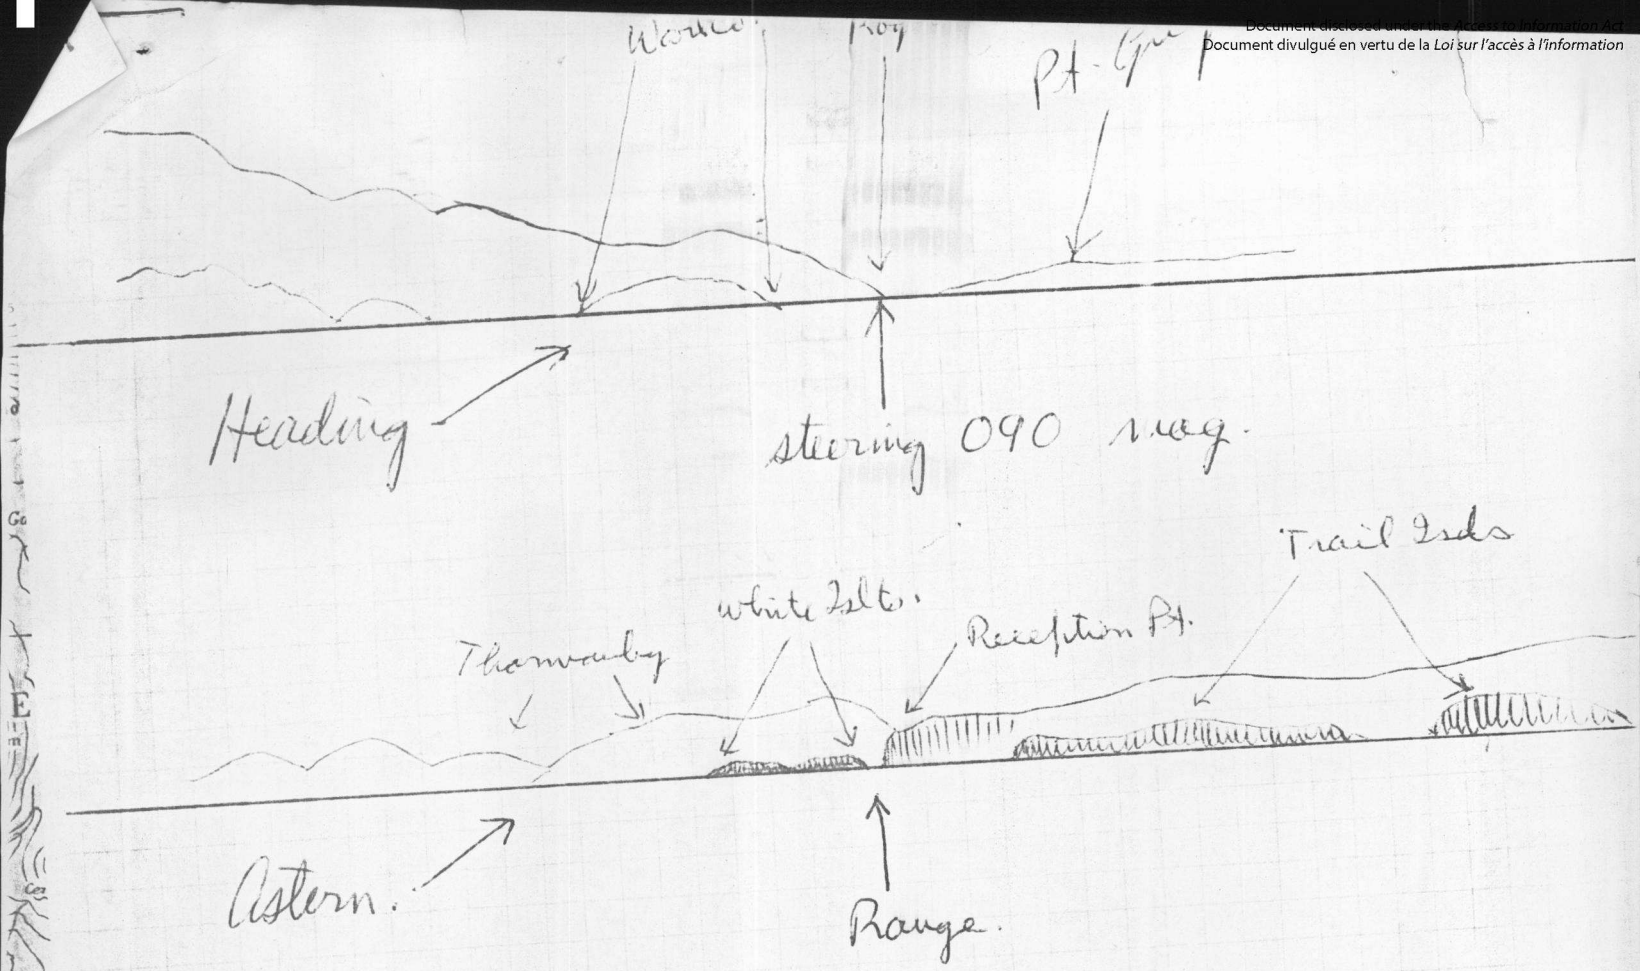 Document disclosed under the Access to Information Act
Document divulgué en vertu de la Loi sur l'accès à l'information
Pt.
Heading
steering 090 mag.
Trail Islds
White Islts.
Reception Pt.
Thormanby
Astern.
Range.
E